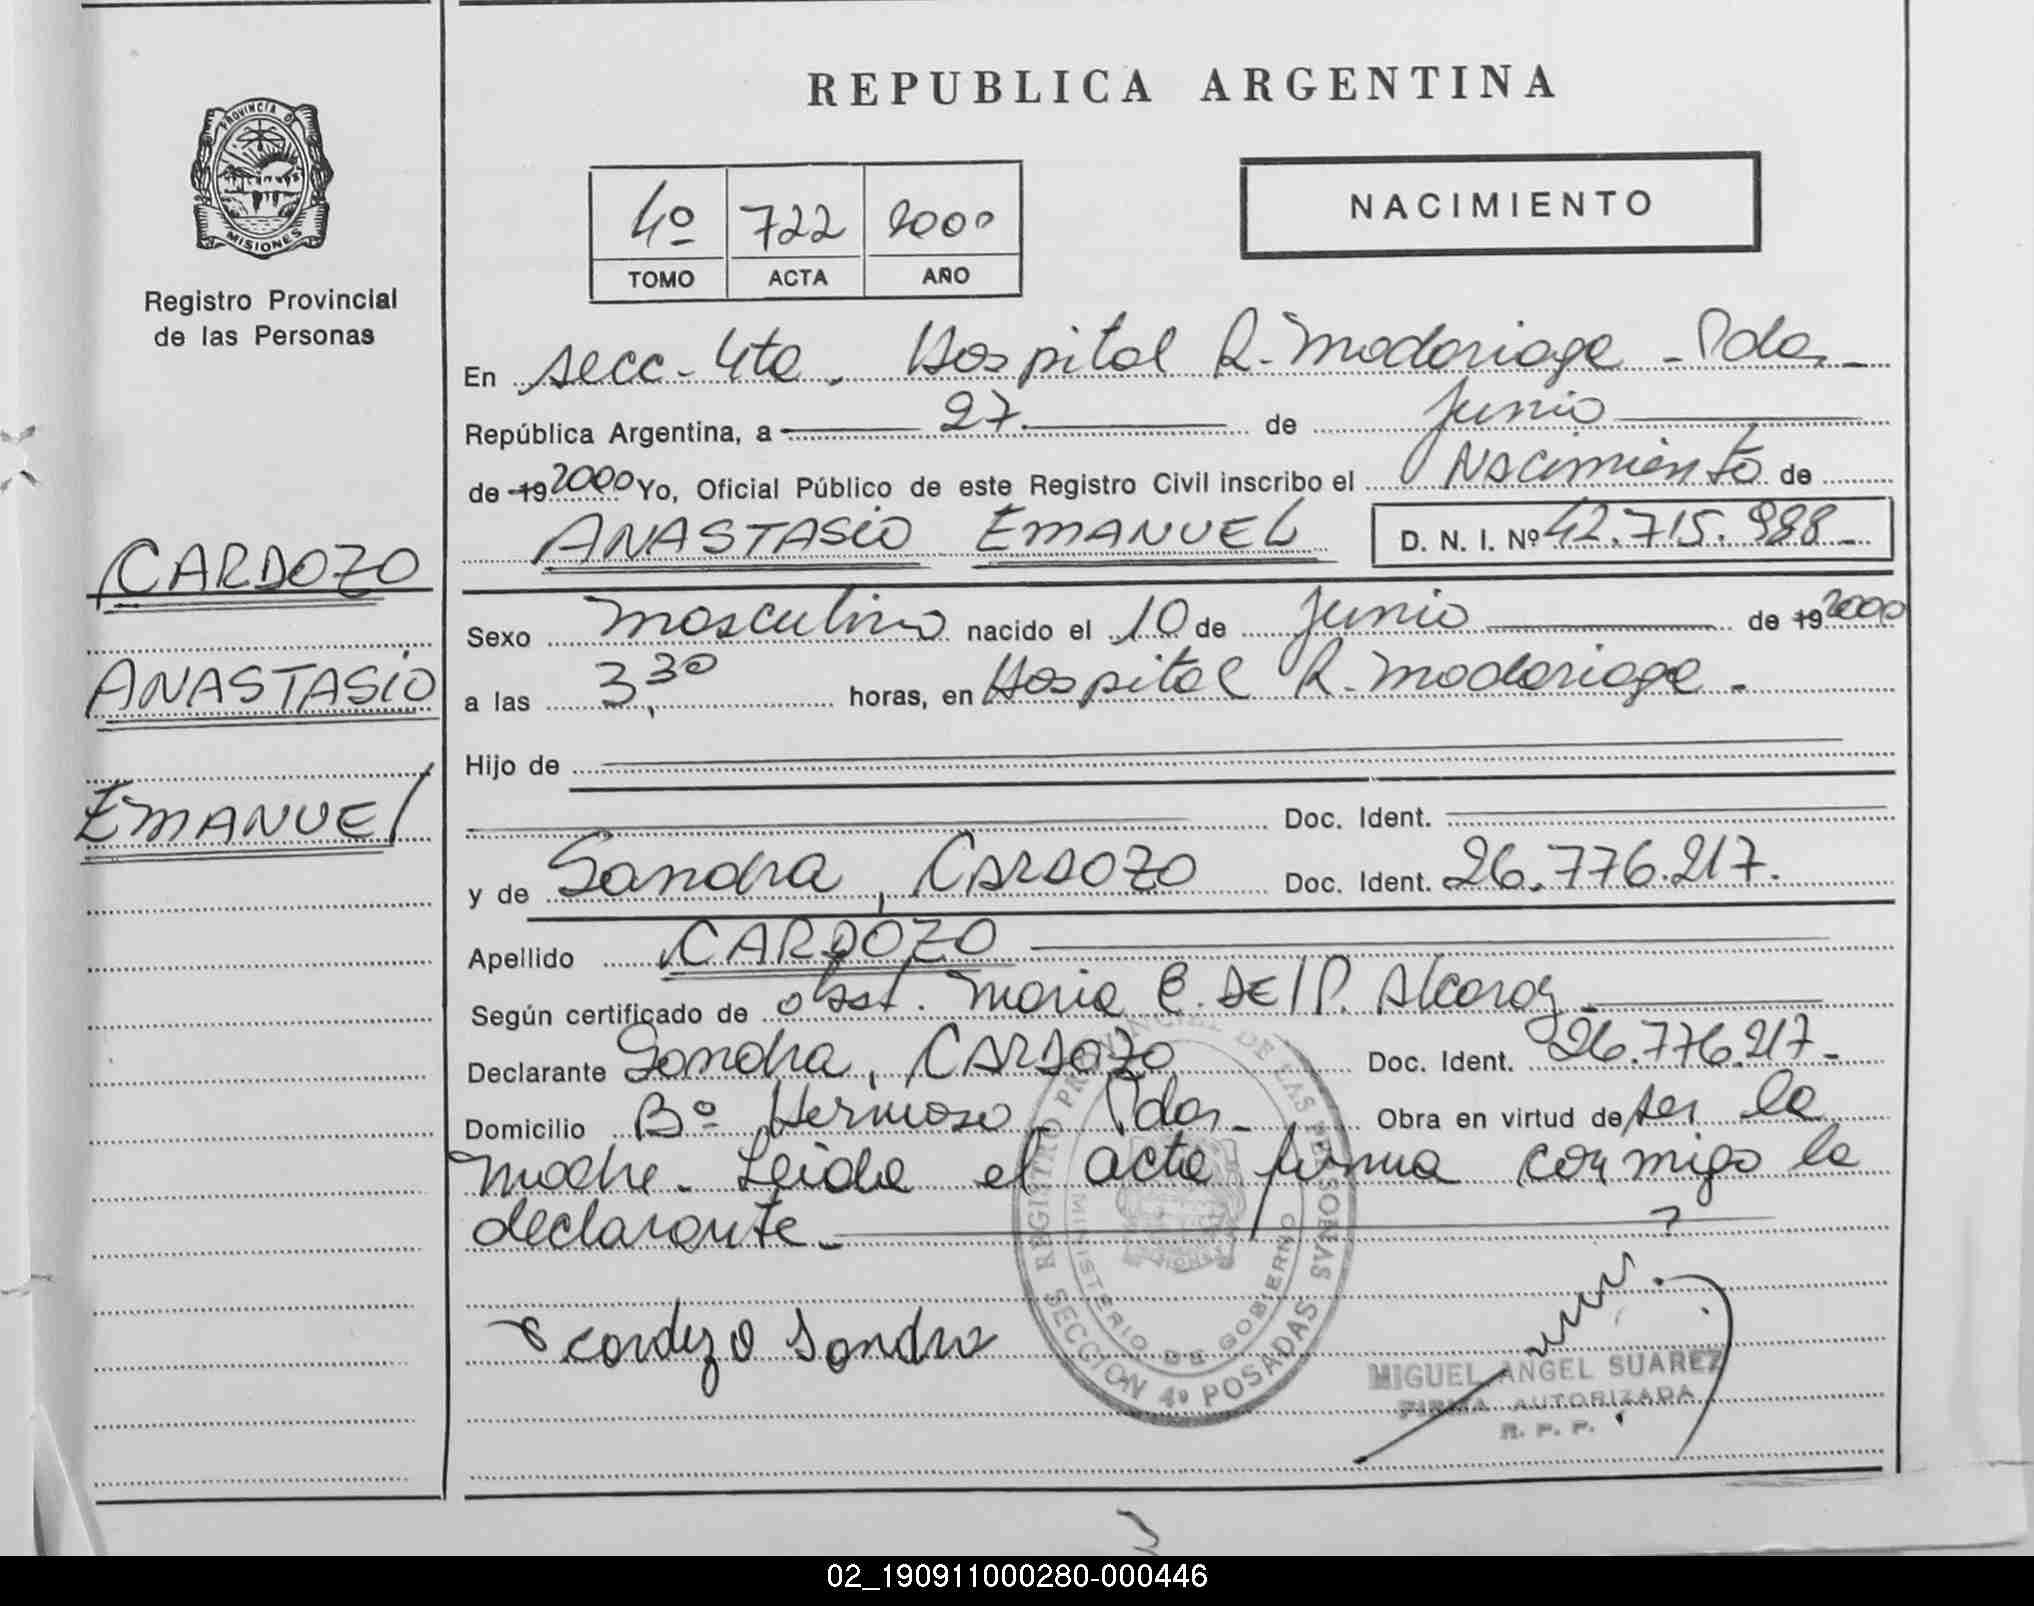 REPUBLICA ARGENTINA
PROVINCIA D
MISIONES
Registro Provincial
de las Personas
4º 722 2000
TOMO ACTA AÑO
NACIMIENTO
En secc. 4ta. Hospital R. Madariaga - Pdas -
República Argentina, a 27 de Junio
de 19 2000 Yo, Oficial Público de este Registro Civil inscribo el Nacimiento de
ANASTASIO EMANUEL D. N. I. Nº 42.715.988 -
CARDOZO
ANASTASIO
EMANUEL
Sexo Masculino nacido el 10 de Junio de 19 2000
a las 3,30 horas, en Hospital R. Madariaga -
Hijo de
Doc. Ident.
y de Sandra, CARDOZO Doc. Ident. 26.776.217.
Apellido CARDOZO
Según certificado de obst. Maria E. DEL P. Alcaraz -
Declarante Sandra, CARDOZO Doc. Ident. 26.776.217 -
Domicilio Bº Hermoso - Pdas - Obra en virtud de ser la
madre - Leida el acta firma conmigo la
declarante -
REGISTRO PROVINCIAL DE LAS PERSONAS
MINISTERIO DE GOBIERNO
SECCION 4º POSADAS
Cardozo Sandra
MIGUEL ANGEL SUAREZ
FIRMA AUTORIZADA
R. P. P.
02_190911000280-000446